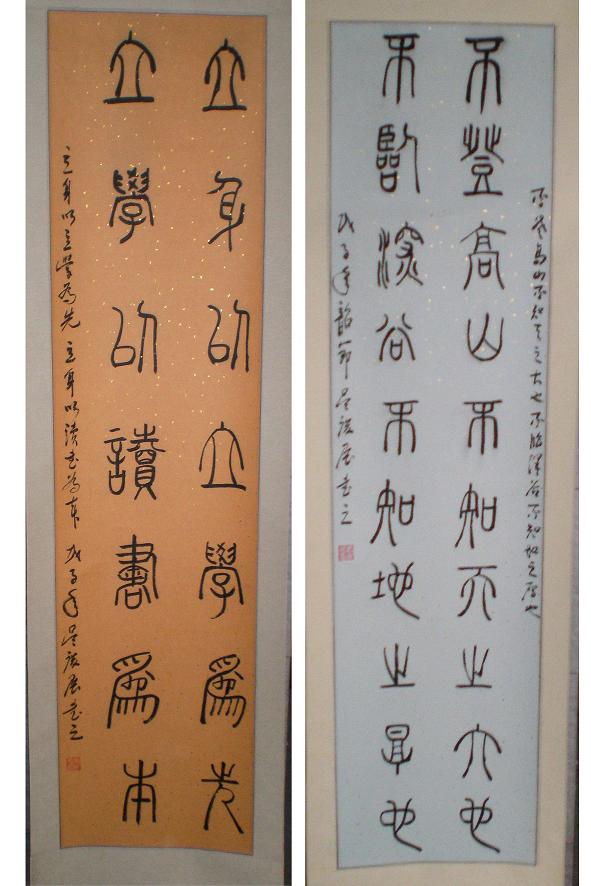 立身以立學爲先
立學以讀書爲本
立身以立學為先 立身以读书为本 戊子年 书之
不登高山不知天之大也不临深谷不知地之厚也
不登高山不知天之大也
不臨深谷不知地之厚也
戊子年 书之